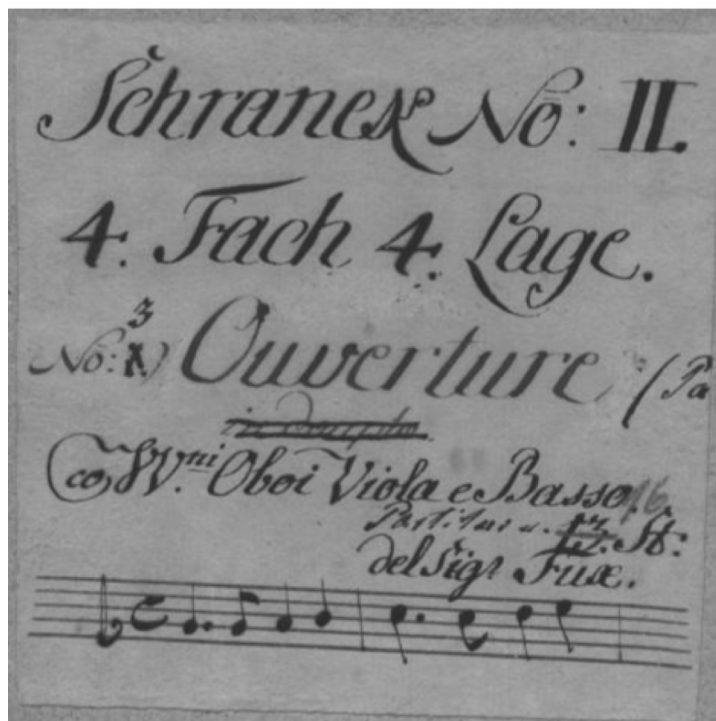 Schranck No: II.
4. Fach 4. Lage.
No: 3
Ouverture (Pa
co VV.ni Oboi Viola e Basso. 16
Partitur u. St:
del Sigr Fux.